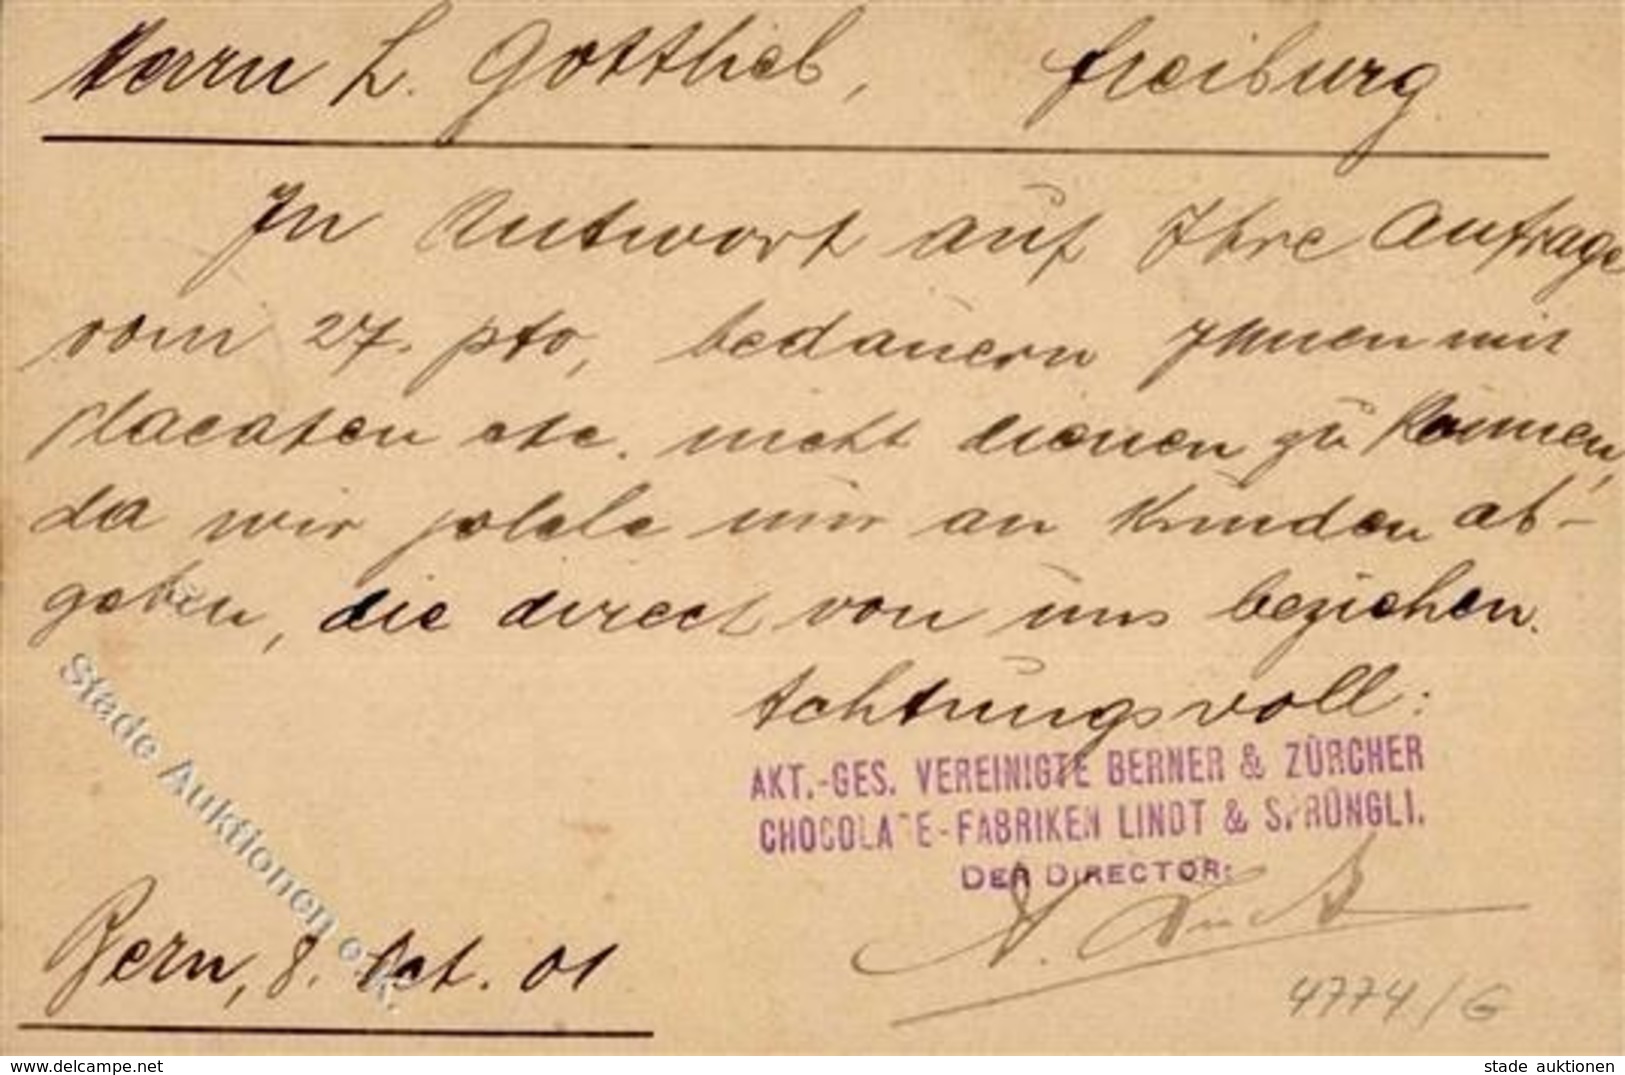 Herrn L. Gottlieb, Freiburg
In Antwort auf Ihre Anfrage
vom 27. pto, bedauern Ihnen mit
placaten etc. nicht dienen zu können,
da wir solche nur an Kunden ab-
geben, die direct von uns beziehen.
Achtungsvoll:
AKT.-GES. VEREINIGTE BERNER & ZÜRCHER
CHOCOLATE-FABRIKEN LINDT & SPRÜNGLI.
DER DIRECTOR:
Bern, 8. Oct. 01
4774/G
Stade Auktionen
www.delcampe.net
stade auktionen